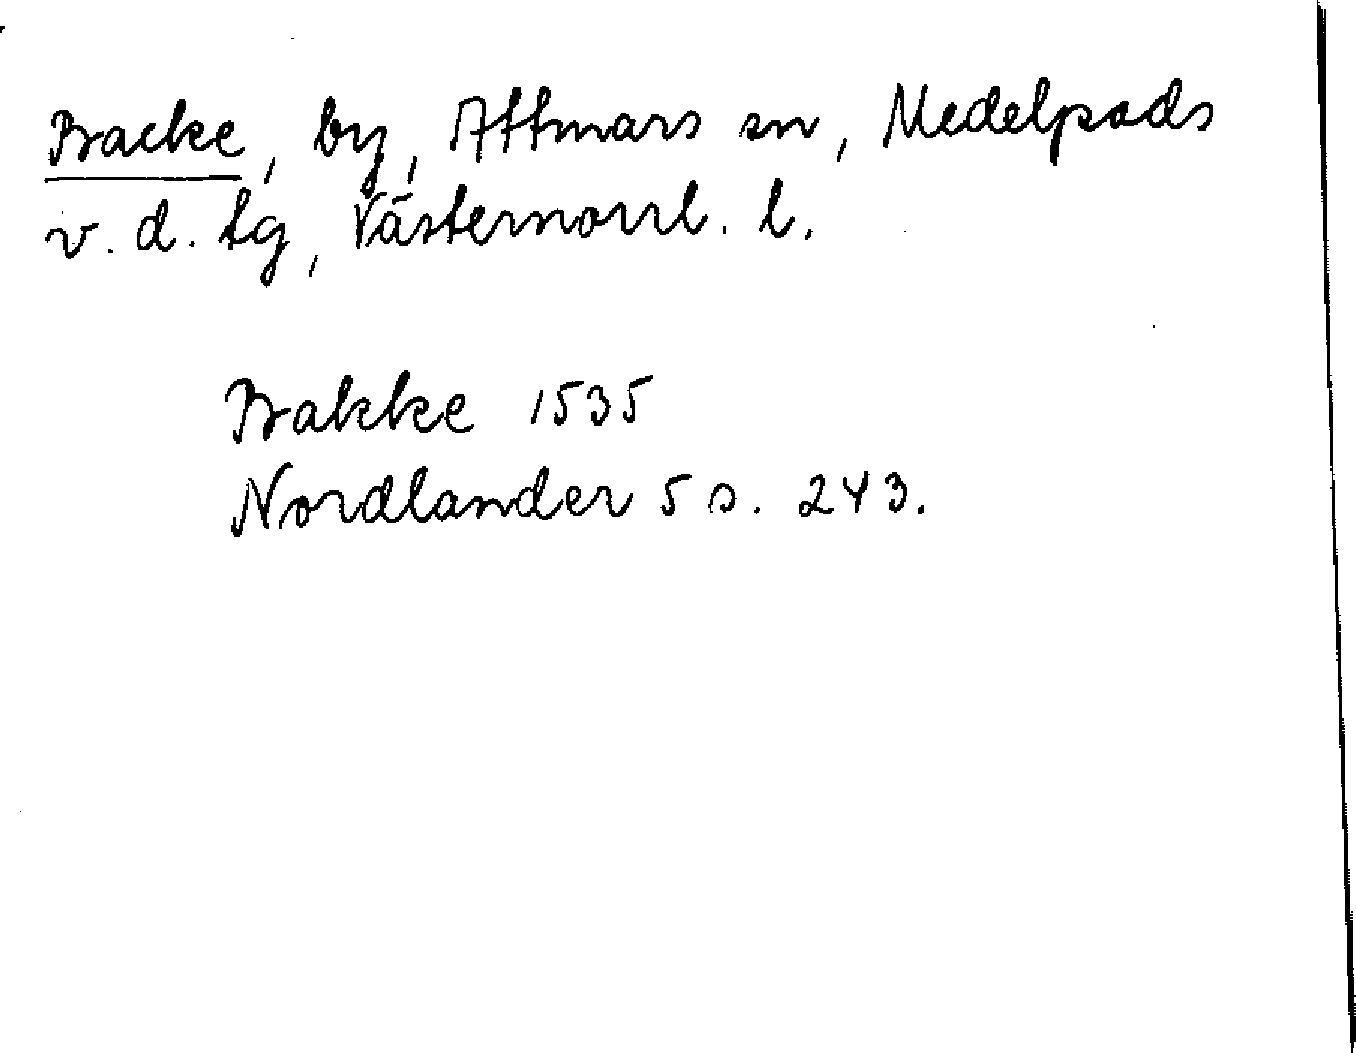 Backe, by, Attmars sn, Medelpads
v. d. tg, Västernorrl. l.
Bakke 1535
Nordlander 5 s. 243.